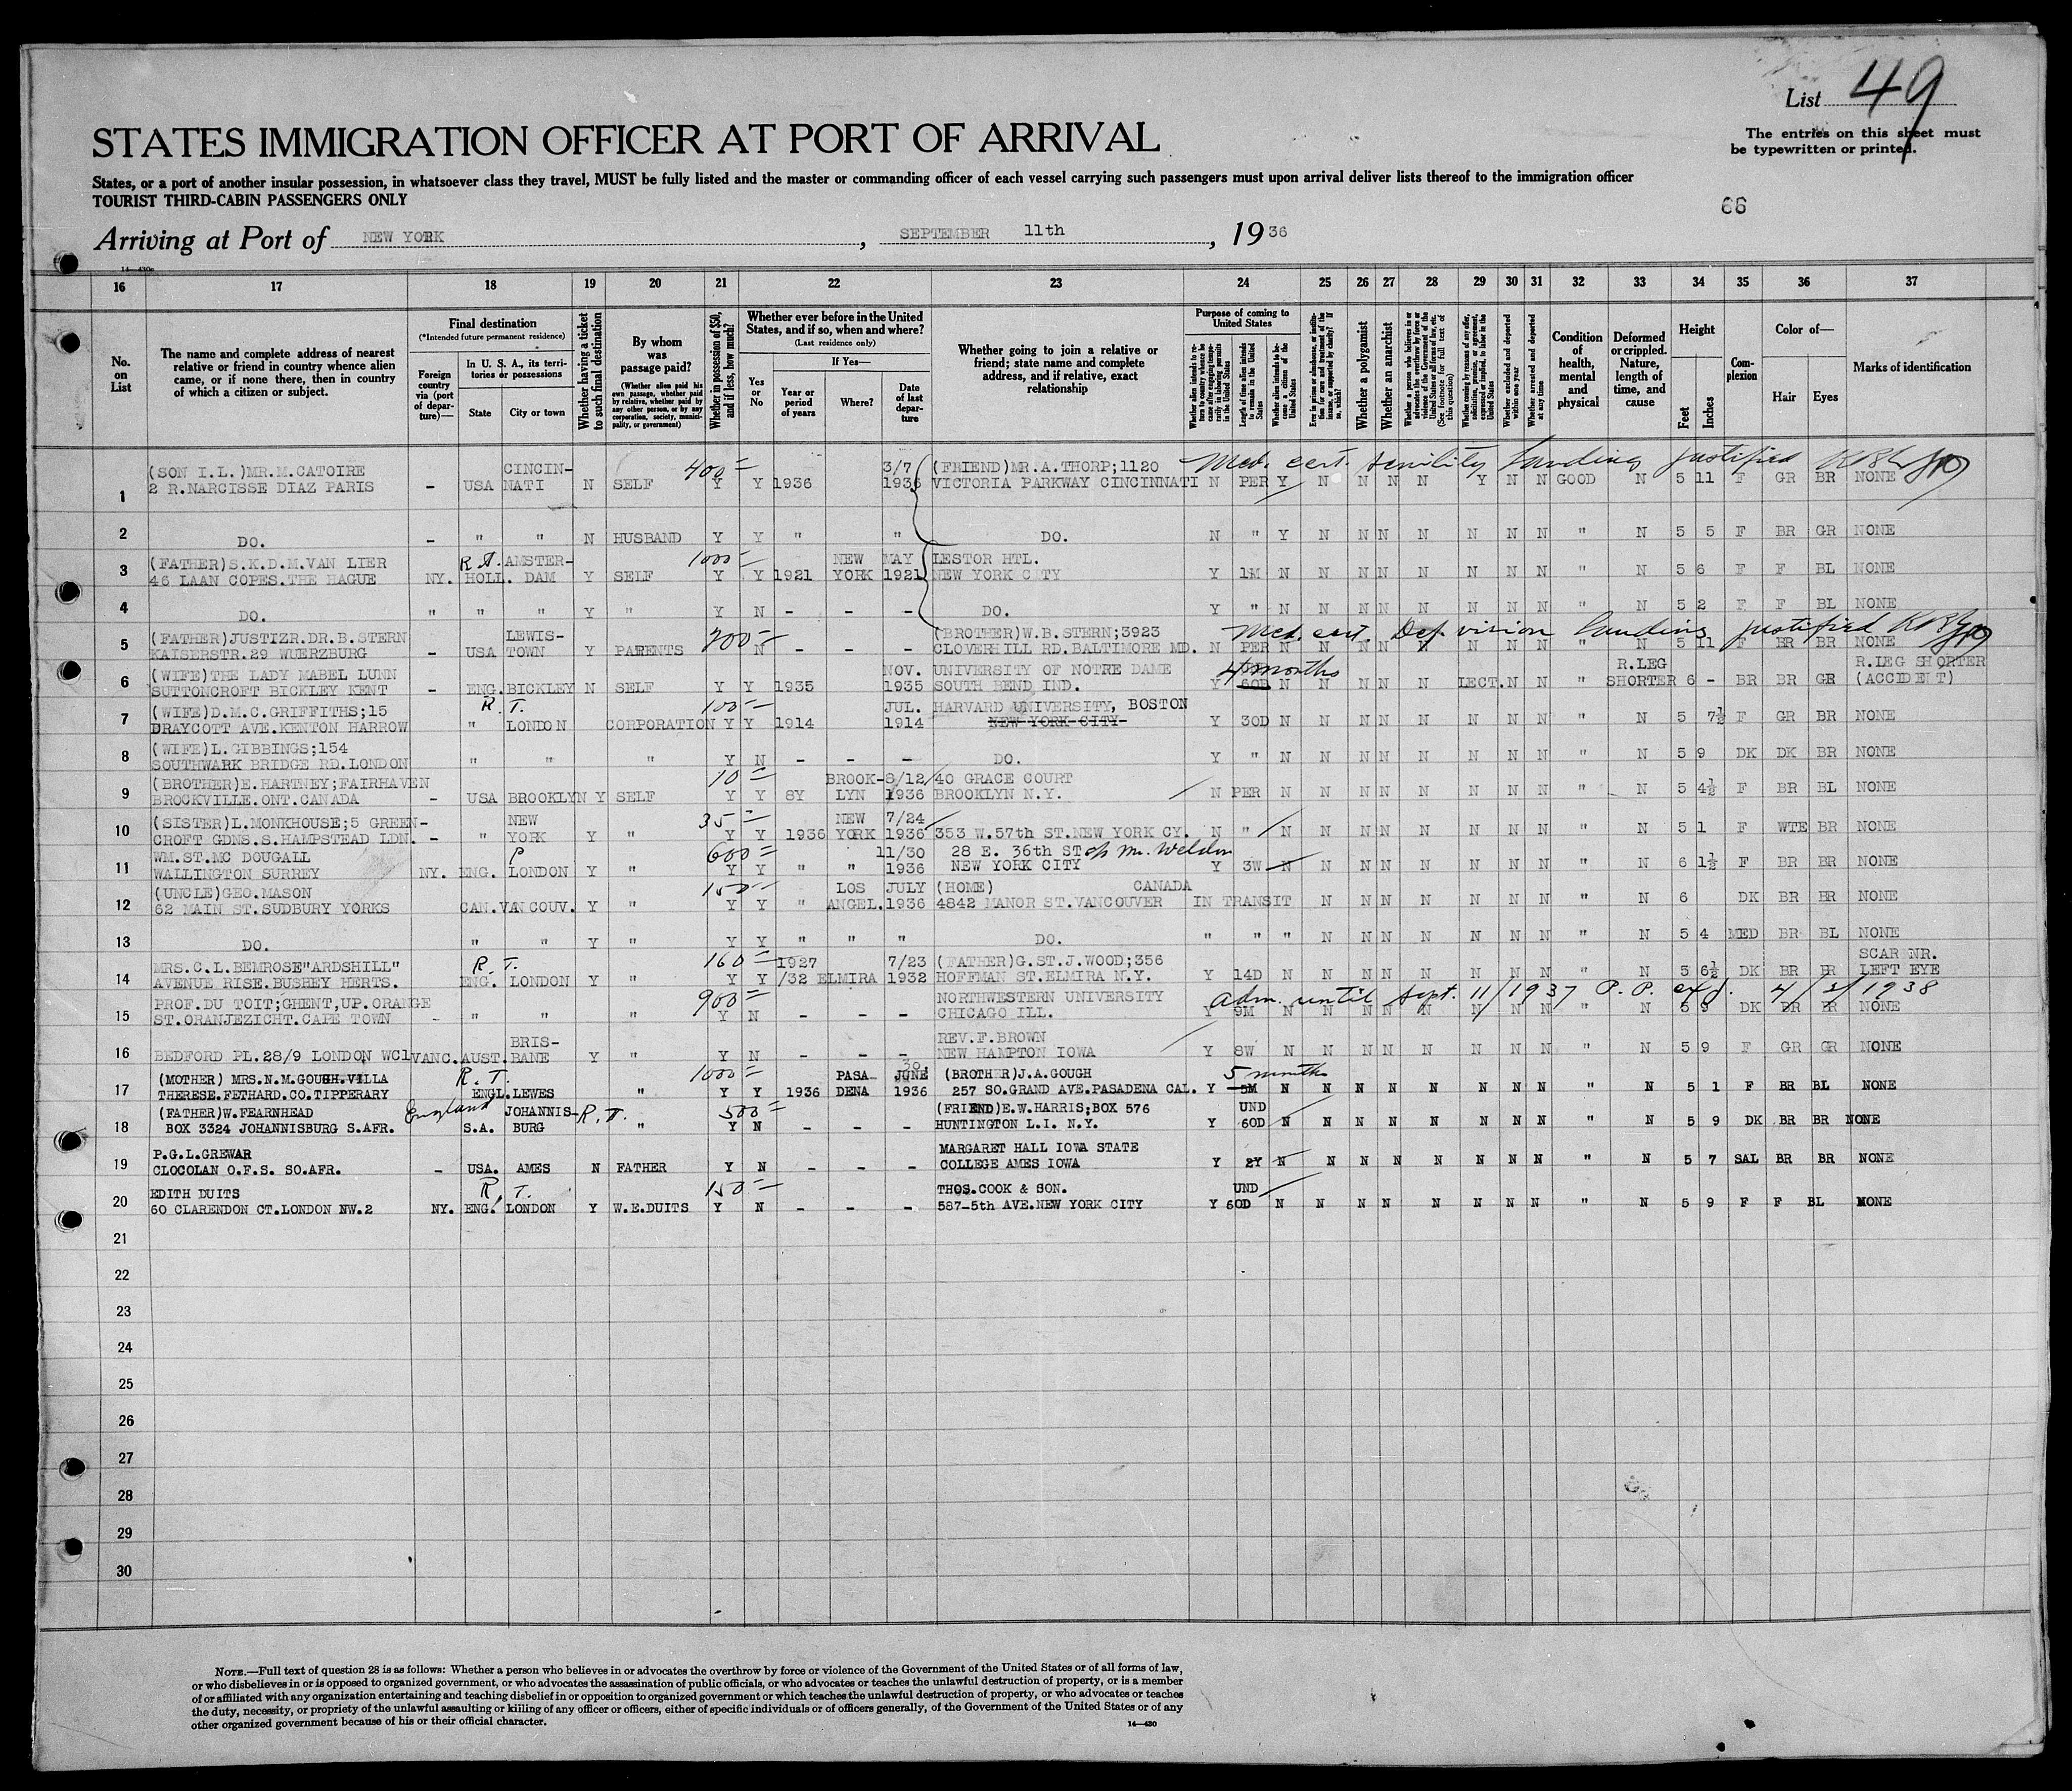 List 49
The entries on this sheet must
be typewritten or printed.
STATES IMMIGRATION OFFICER AT PORT OF ARRIVAL
States, or a port of another insular possession, in whatsoever class they travel, MUST be fully listed and the master or commanding officer of each vessel carrying such passengers must upon arrival deliver lists thereof to the immigration officer
TOURIST THIRD-CABIN PASSENGERS ONLY
66
Arriving at Port of NEW YORK, SEPTEMBER 11th, 1936
16 17 18 19 20 21 22 23 24 25 26 27 28 29 30 31 32 33 34 35 36 37
No. on List
The name and complete address of nearest relative or friend in country whence alien came, or if none there, then in country of which a citizen or subject.
Final destination
(*Intended future permanent residence)
Foreign country via (port of departure)—
In U. S. A., its territories or possessions
State
City or town
Whether having a ticket to such final destination
By whom was passage paid?
(Whether alien paid his own passage, whether paid by relative, whether paid by any other person, or by any corporation, society, municipality, or government)
Whether in possession of $50, and if less, how much?
Whether ever before in the United States, and if so, when and where?
(Last residence only)
Yes or No
If Yes—
Year or period of years
Where?
Date of last departure
Whether going to join a relative or friend; state name and complete address, and if relative, exact relationship
Purpose of coming to United States
Length of time alien intends to remain in the United States
Whether alien intends to become a citizen of the United States
Whether a polygamist
Whether an anarchist
Whether excluded and deported within one year
Whether arrested and deported at any time
Condition of health, mental and physical
Deformed or crippled. Nature, length of time, and cause
Height
Feet
Inches
Complexion
Color of—
Hair
Eyes
Marks of identification
(SON I.L.)MR.M.CATOIRE CINCIN- 400= 3/7 (FRIEND)MR.A.THORP;1120 Med. cert. senility landing justified
1 2 R.NARCISSE DIAZ PARIS - USA NATI N SELF Y Y 1936 1936 VICTORIA PARKWAY CINCINNATI N PER Y N N N N Y N N GOOD N 5 11 F GR BR NONE
2 DO. - " " N HUSBAND Y Y " " DO. N " Y N N N N N N N " N 5 5 F BR GR NONE
(FATHER)S.K.D.M.VAN LIER R.T. AMSTER- 1000= NEW MAY LESTOR HTL.
3 46 LAAN COPES.THE HAGUE NY. HOLL. DAM Y SELF Y Y 1921 YORK 1921 NEW YORK CITY Y 1M N N N N N N N N " N 5 6 F F BL NONE
4 DO. " " " Y " Y N - - - DO. Y " N N N N N N N N " N 5 2 F F BL NONE
(FATHER)JUSTIZR.DR.B.STERN LEWIS- 200= (BROTHER)W.B.STERN;3923 Med. cert. Def vision landing justified
5 KAISERSTR.29 WUERZBURG - USA TOWN Y PARENTS N - - - CLOVERHILL RD.BALTIMORE MD. N PER N N N N N N N N " N 5 11 F BR BR NONE
(WIFE)THE LADY MABEL LUNN NOV. UNIVERSITY OF NOTRE DAME 4 months R.LEG R.LEG SHORTER
6 SUTTONCROFT BICKLEY KENT - ENG. BICKLEY N SELF Y Y 1935 1935 SOUTH BEND IND. Y 60D N N N N N LECT. N N " SHORTER 6 - BR BR GR (ACCIDENT)
(WIFE)D.M.C.GRIFFITHS;15 R.T. 100= JUL. HARVARD UNIVERSITY, BOSTON
7 DRAYCOTT AVE.KENTON HARROW " LONDON CORPORATION Y Y 1914 1914 NEW YORK CITY Y 30D N N N N N N N N " N 5 7½ F GR BR NONE
(WIFE)L.GIBBINGS;154
8 SOUTHWARK BRIDGE RD.LONDON " " " Y N - - - DO. Y " N N N N N N N N " N 5 9 DK DK BR NONE
(BROTHER)E.HARTNEY;FAIRHAVEN 10= BROOK- 8/12 40 GRACE COURT
9 BROCKVILLE.ONT.CANADA - USA BROOKLYN Y SELF Y Y 8Y LYN 1936 BROOKLYN N.Y. N PER N N N N N N N N " N 5 4½ F BR BL NONE
(SISTER)L.MONKHOUSE;5 GREEN- NEW 35= NEW 7/24
10 CROFT GDNS.S.HAMPSTEAD LDN. - " YORK Y " Y Y 1936 YORK 1936 353 W.57th ST.NEW YORK CY. N " N N N N N N N N " N 5 1 F WTE BR NONE
WM.ST.MC DOUGALL 600= 11/30 28 E. 36th ST c/o Mr. Weldon
11 WALLINGTON SURREY NY. ENG. LONDON Y " Y Y " " 1936 NEW YORK CITY Y 3W N N N N N N N N " N 6 1½ F BR BR NONE
(UNCLE)GEO.MASON 150= LOS JULY (HOME) CANADA
12 62 MAIN ST.SUDBURY YORKS CAN. VANCOUV. Y " Y Y " ANGEL. 1936 4842 MANOR ST.VANCOUVER IN TRANSIT N N N N N N N " N 6 DK BR BR NONE
13 DO. " " Y " Y Y " " " DO. " " " N N N N N N N " N 5 4 MED BR BL NONE
MRS.C.L.BEMROSE"ARDSHILL" R.T. 160= 1927 7/23 (FATHER)G.ST.J.WOOD;356 SCAR NR.
14 AVENUE RISE.BUSHEY HERTS. ENG. LONDON Y " Y Y /32 ELMIRA 1932 HOFFMAN ST.ELMIRA N.Y. Y 14D N N N N N N N N " N 5 6½ DK BR BR LEFT EYE
PROF.DU TOIT;GHENT,UP.ORANGE 900= NORTHWESTERN UNIVERSITY adm. until Sept. 11/1937 P.P. exp. 4/2/1938
15 ST.ORANJEZICHT.CAPE TOWN - " " " Y N - - - CHICAGO ILL. Y 9M N N N N N N N N " N 5 9 DK BR BR NONE
BRIS- REV.F.BROWN
16 BEDFORD PL.28/9 LONDON WC1 VANC. AUST. BANE Y " Y N - - - NEW HAMPTON IOWA Y 8W N N N N N N N N " N 5 9 F GR GR NONE
(MOTHER) MRS.N.M.GOUGH.VILLA R.T. 1000= PASA- JUNE 30. (BROTHER)J.A.GOUGH 5 months
17 THERESE.FETHARD.CO.TIPPERARY ENGL. LEWES " Y Y 1936 DENA 1936 257 SO.GRAND AVE.PASADENA CAL. Y 5M N N N N N N N N " N 5 1 F BR BL NONE
(FATHER)W.FEARNHEAD England JOHANNIS- R.T. 500= (FRIEND)E.W.HARRIS;BOX 576 UND
18 BOX 3324 JOHANNISBURG S.AFR. S.A. BURG " Y N - - - HUNTINGTON L.I. N.Y. Y 60D N N N N N N N N " N 5 9 DK BR BR NONE
P.G.L.GREWAR MARGARET HALL IOWA STATE
19 CLOCOLAN O.F.S. SO.AFR. - USA. AMES N FATHER Y N - - - COLLEGE AMES IOWA Y 2Y N N N N N N N N " N 5 7 SAL BR BR NONE
EDITH DUITS R.T. 150= THOS.COOK & SON. UND
20 60 CLARENDON CT.LONDON NW.2 NY. ENG. LONDON Y W.E.DUITS Y N - - - 587-5th AVE.NEW YORK CITY Y 60D N N N N N N N N " N 5 9 F F BL NONE
21
22
23
24
25
26
27
28
29
30
NOTE.—Full text of question 28 is as follows: Whether a person who believes in or advocates the overthrow by force or violence of the Government of the United States or of all forms of law,
or who disbelieves in or is opposed to organized government, or who advocates the assassination of public officials, or who advocates or teaches the unlawful destruction of property, or is a member
of or affiliated with any organization entertaining and teaching disbelief in or opposition to organized government or which teaches the unlawful destruction of property, or who advocates or teaches
the duty, necessity, or propriety of the unlawful assaulting or killing of any officer or officers, either of specific individuals or of officers generally, of the Government of the United States or of any
other organized government because of his or their official character.
14—430